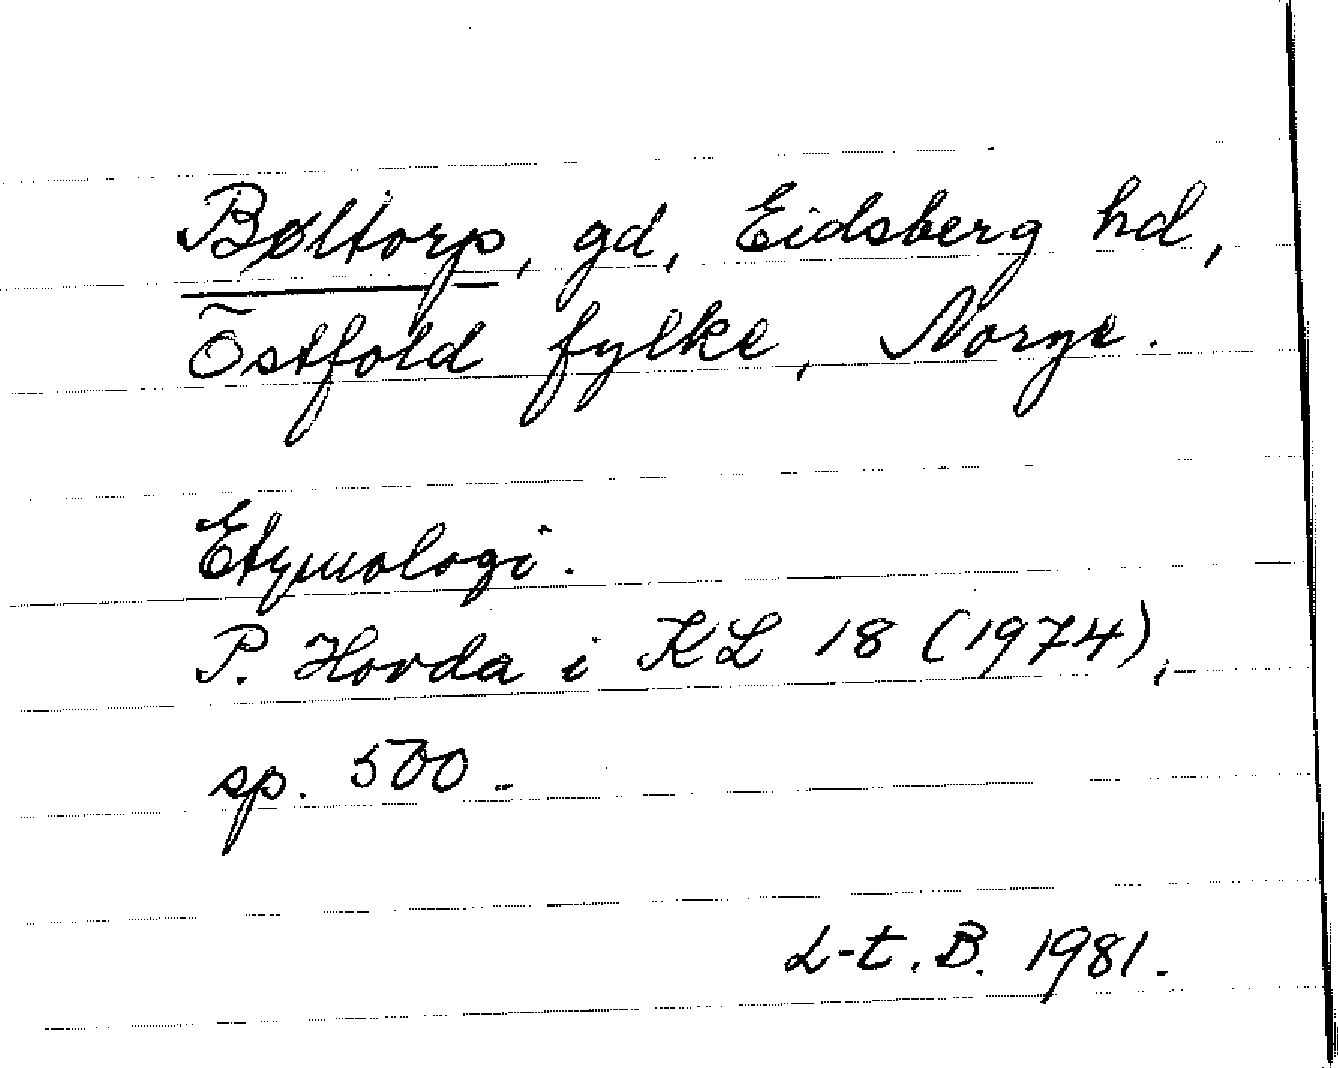 Bøltorp, gd, Eidsberg hd,
Östfold fylke, Norge.
Etymologi.
P. Hovda i KL 18 (1974),
sp. 500.
L-t. B. 1981.